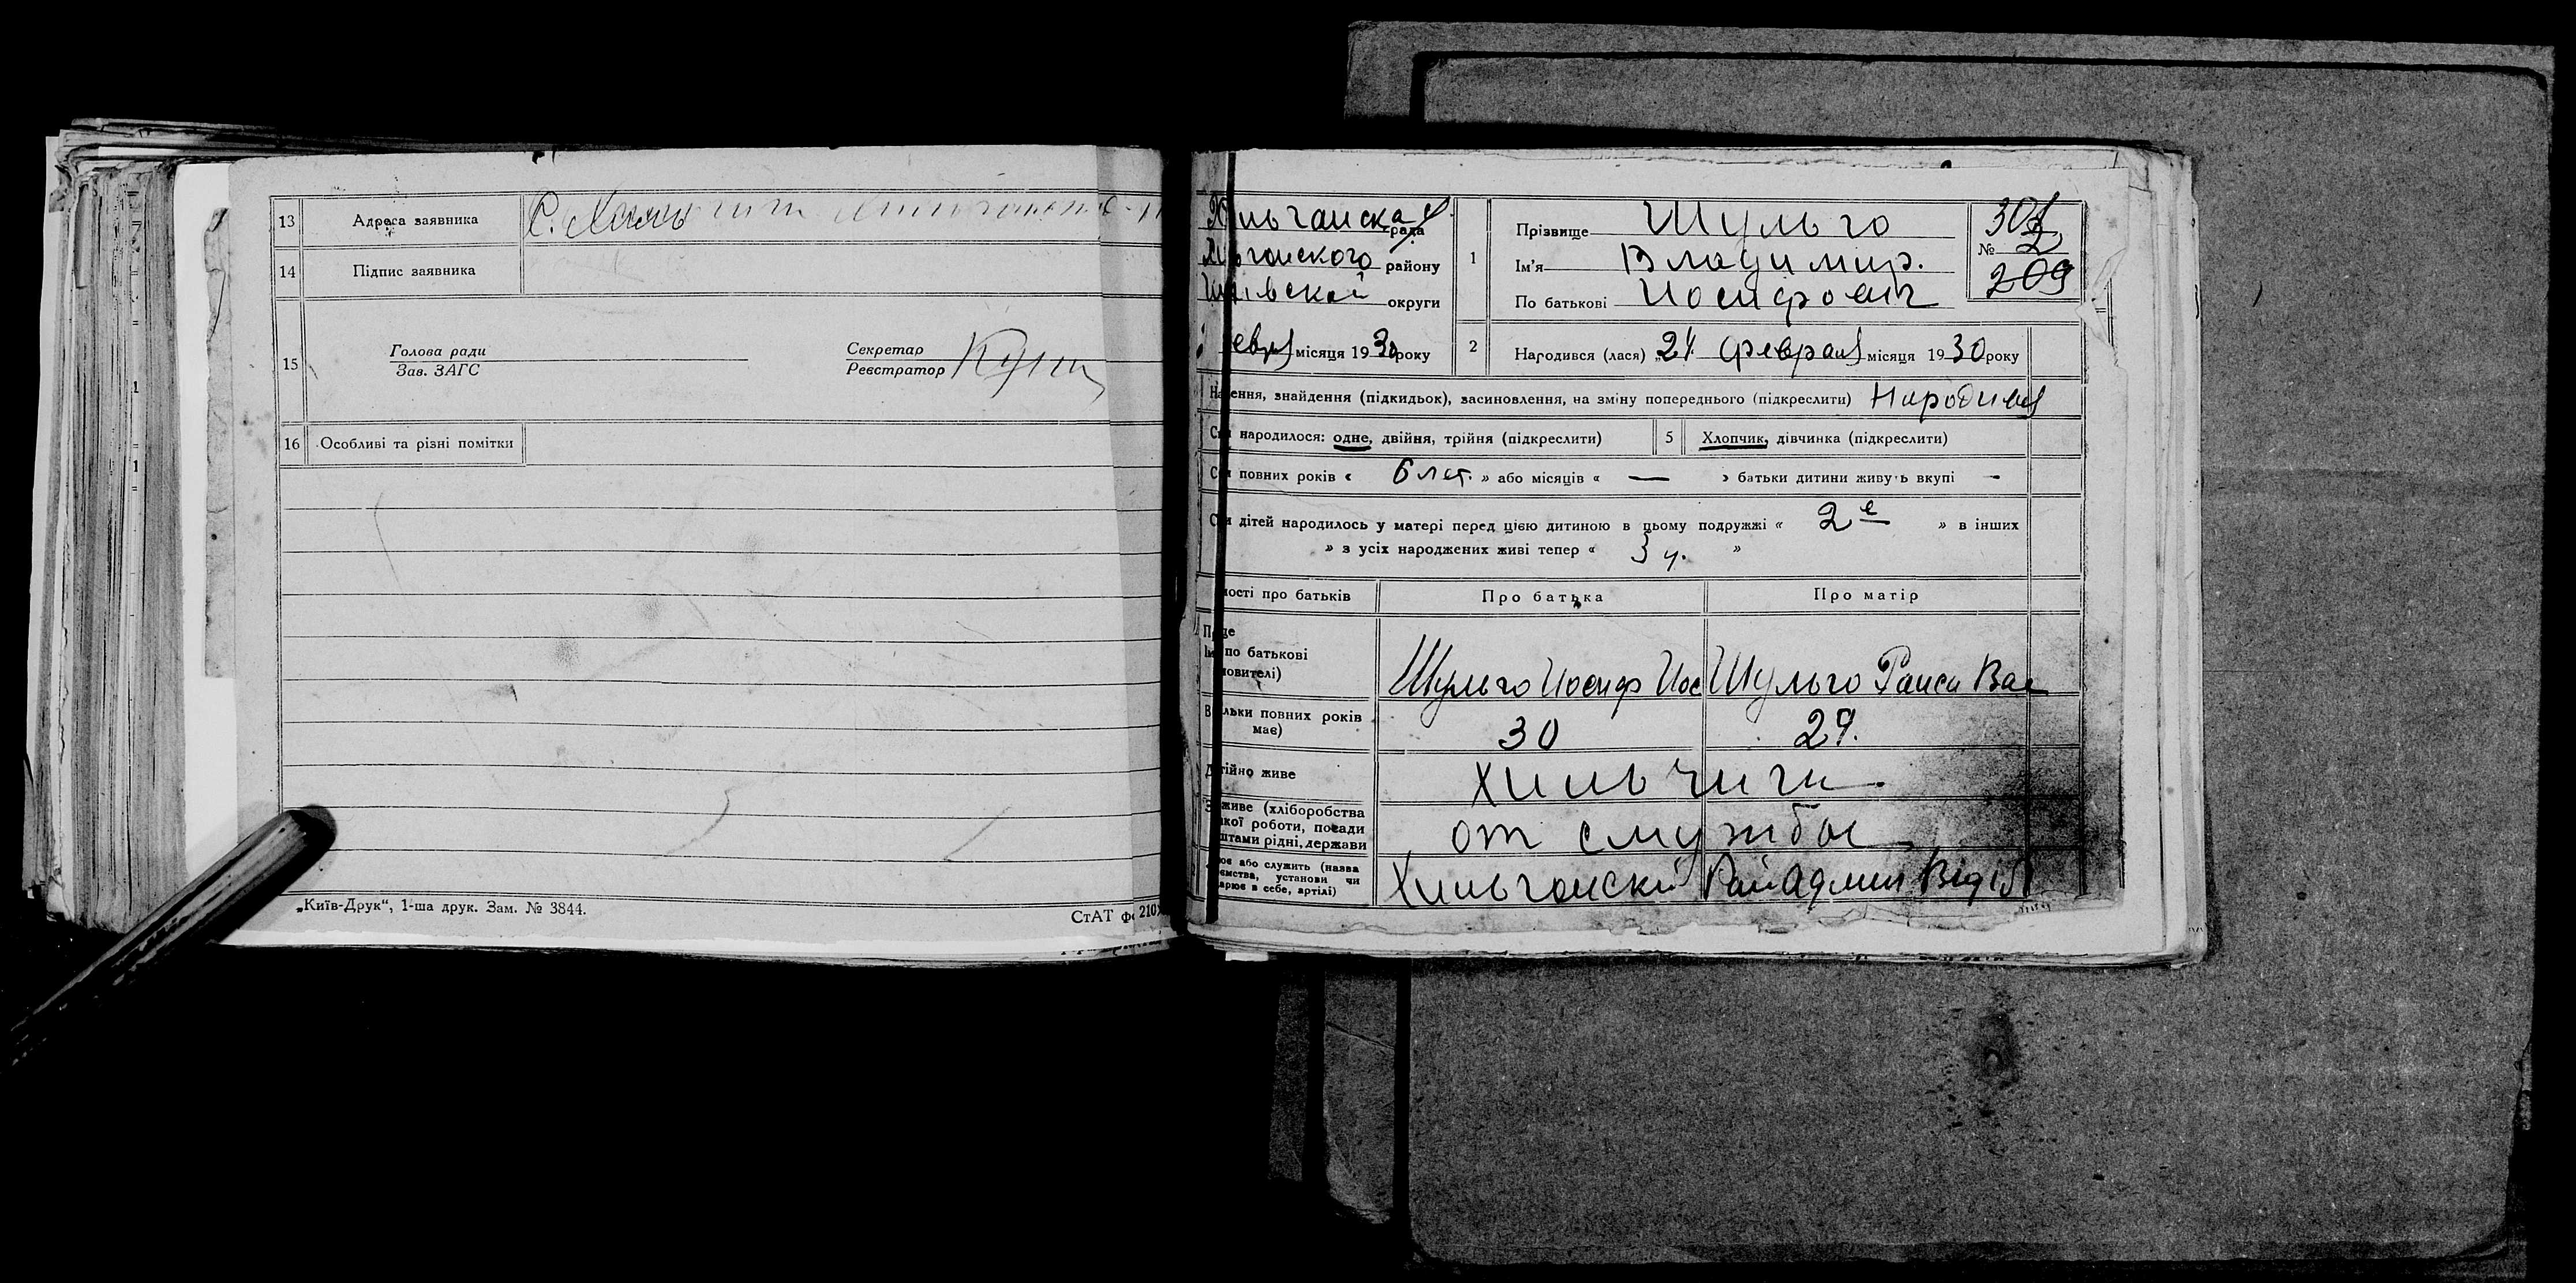 13 Адреса заявника С.
14 Підпис заявника
15 Голова ради
Зав. ЗАГС
Секретар
Реєстратор
16 Особливі та різні помітки
„Київ-Друк“, 1-ша друк. Зам. № 3844.
СтАТ 210
рада
району
округи
місяця 1930 року
1 Прізвище Шульго
Ім'я Владимир.
По батькові Иосифович
№ 2
209
2 Народився (лася) „24. Февраля місяця 1930 року
ення, знайдення (підкидьок), засиновлення, на зміну попереднього (підкреслити)
народилося: одне, двійня, трійня (підкреслити) 5 Хлопчик, дівчинка (підкреслити)
повних років « 6 лет. » або місяців « — » батьки дитини живуть вкупі —
дітей народилось у матері перед цією дитиною в цьому подружжі « 2е » в інших
» з усіх народжених живі тепер « 3 ч. »
ності про батьків Про батька Про матір
по батькові
новителі)
Шульго Иосиф Иос Шульго Раиса Вас
льки повних років
має)
30
тійно живе Хильчичи
живе (хліборобства
кої роботи, посади
штами рідні, держави
от службы
ює або служить (назва
ємства, установи чи
арює в себе, артілі)